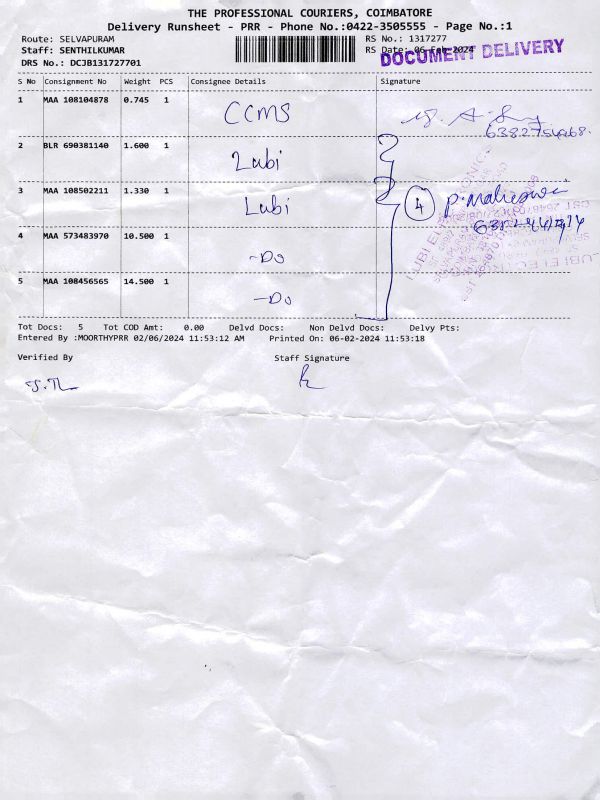 THE PROFESSIONAL COURIERS, COIMBATORE
Delivery Runsheet - PRR - Phone No.:0422-3505555 - Page No.:1
Route: SELVAPURAM
RS No.: 1317277
Staff: SENTHILKUMAR
RS Date: 06-Feb-2024
DOCUMENT DELIVERY
DRS No.: DCJB131727701
S No Consignment No Weight PCS Consignee Details Signature
1 MAA 108104878 0.745 1 CCMS
2 BLR 690381140 1.600 1 Lubi
3 MAA 108502211 1.330 1 Lubi
4 P. Maheswari
4 MAA 573483970 10.500 1 -Do
5 MAA 108456565 14.500 1 -Do
Tot Docs: 5 Tot COD Amt: 0.00 Delvd Docs: Non Delvd Docs: Delvy Pts:
Entered By :MOORTHYPRR 02/06/2024 11:53:12 AM Printed On: 06-02-2024 11:53:18
Verified By Staff Signature